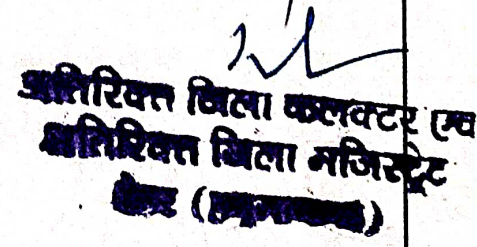 अतिरिक्त जिला कलक्टर एव
अतिरिक्त जिला मजिस्ट्रेट